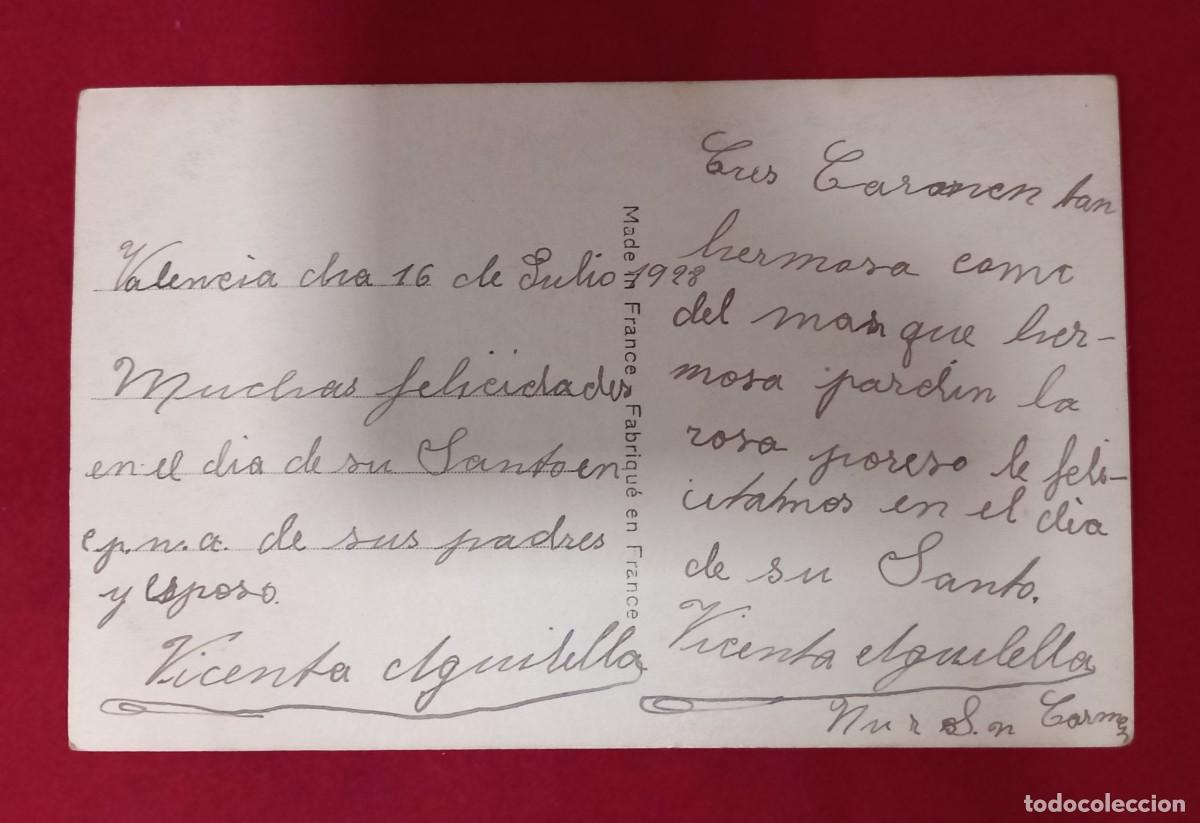 Valencia dia 16 de Julio 1928
Muchas felicidades
en el dia de su Santo en
c.p.n.a. de sus padres
y esposo.
Vicenta Aguilella
Made in France - Fabriqué en France
Eres Carmen tan
hermosa como
del mar que her-
mosa jardin la
rosa poreso le feli-
citamos en el dia
de su Santo.
Vicenta Aguilella
Carmen
todocoleccion